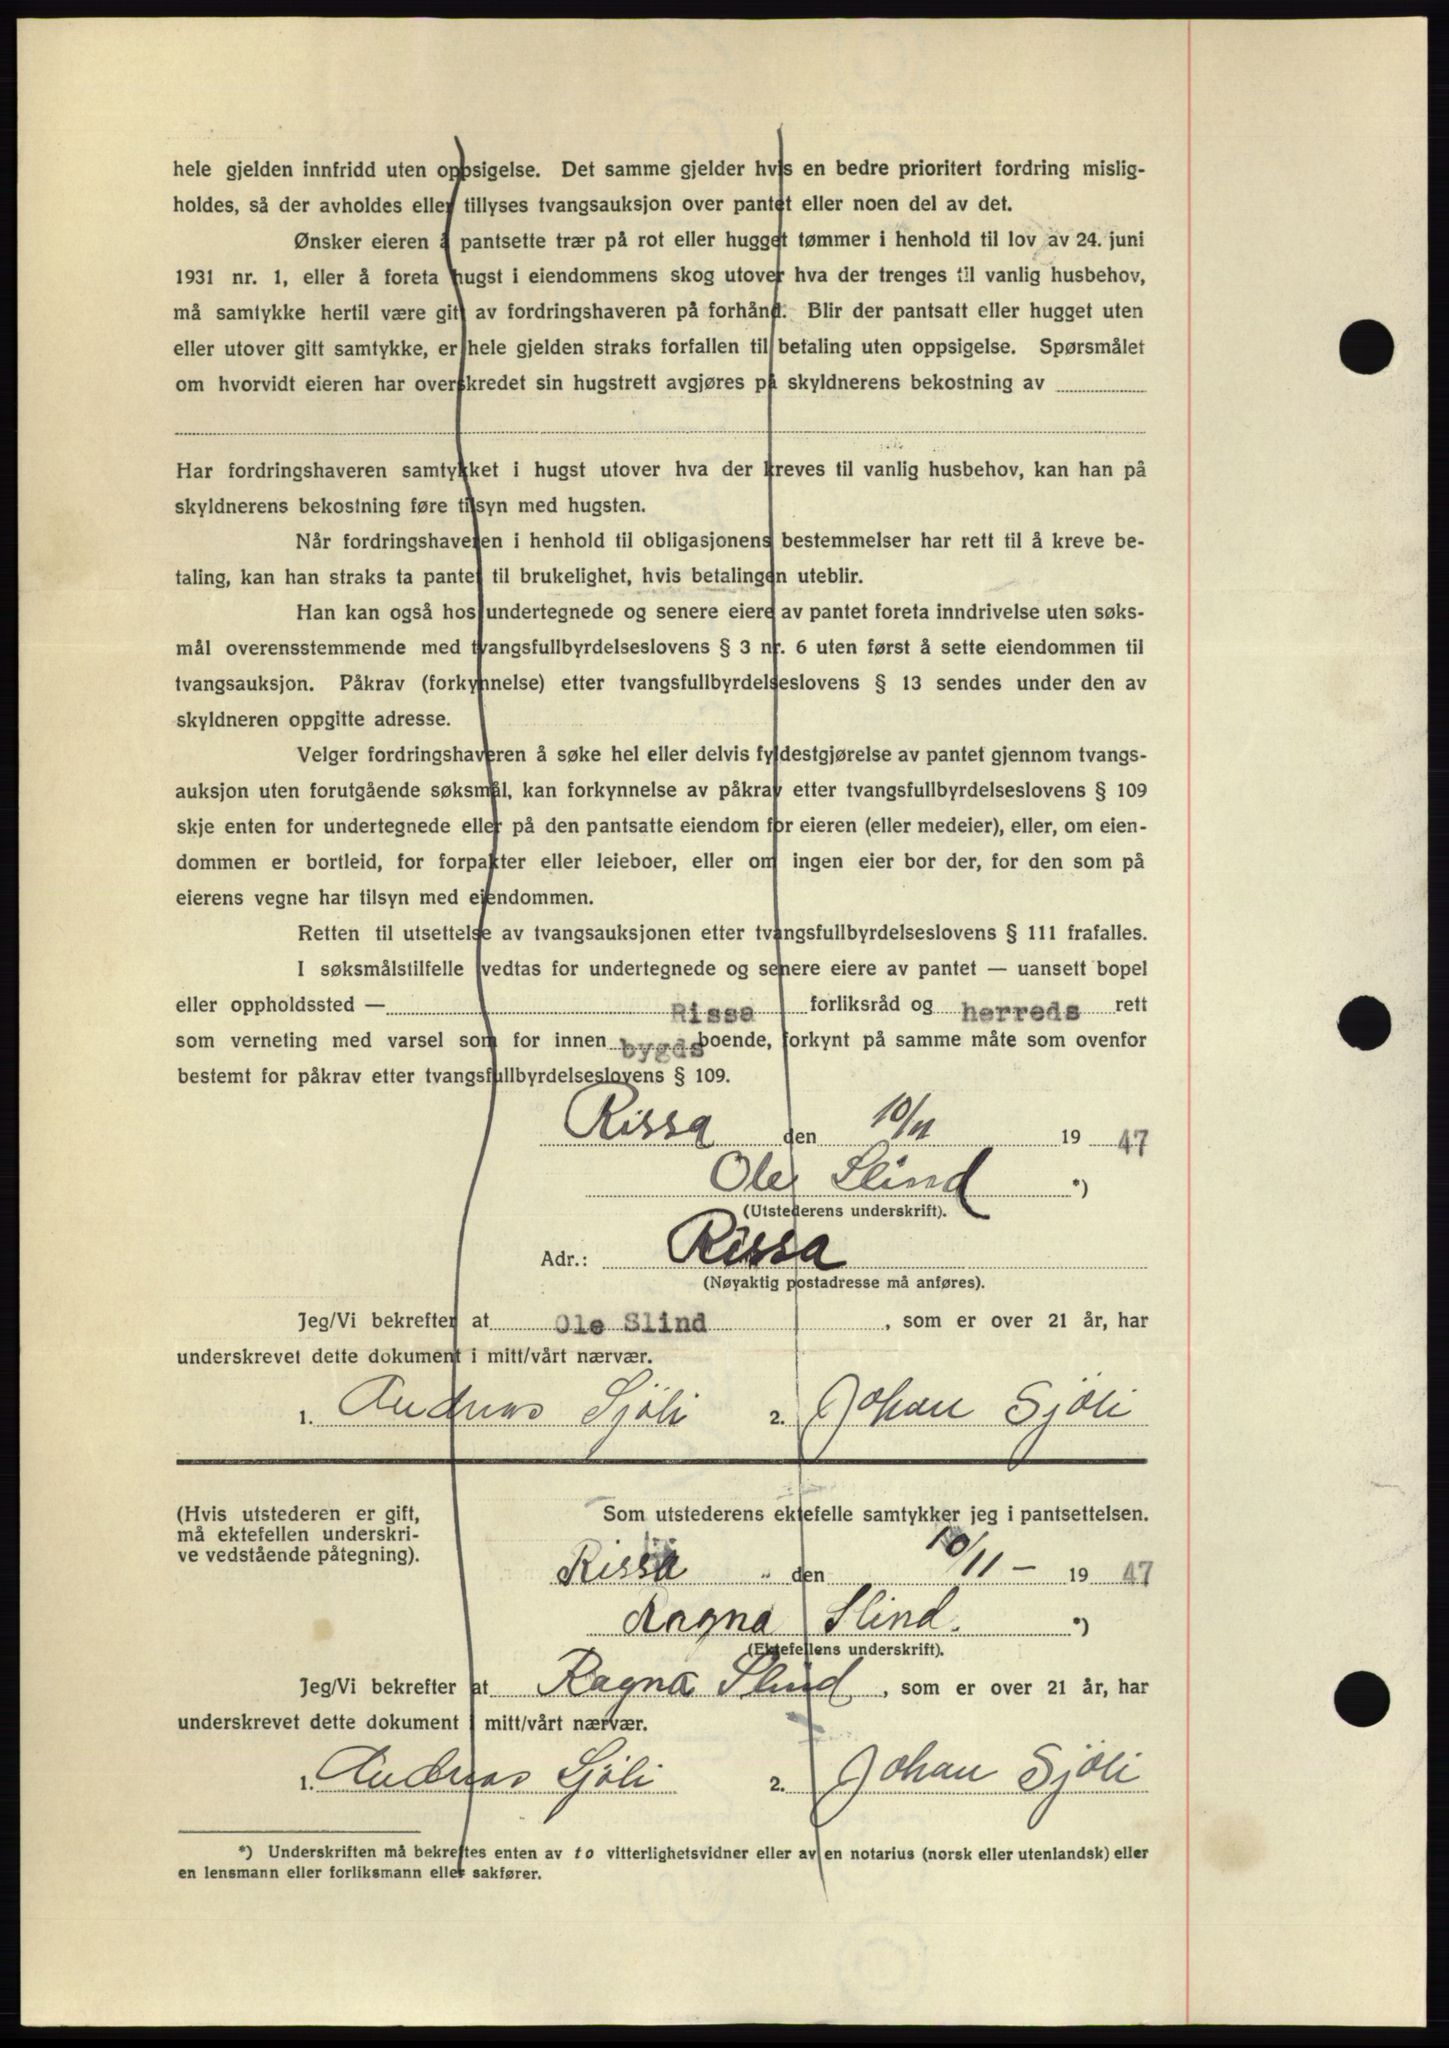 hele gjelden innfridd uten oppsigelse. Det samme gjelder hvis en bedre prioritert fordring mislig-
holdes, så der avholdes eller tillyses tvangsauksjon over pantet eller noen del av det.
Ønsker eieren å pantsette trær på rot eller hugget tømmer i henhold til lov av 24. juni
1931 nr. 1, eller å foreta hugst i eiendommens skog utover hva der trenges til vanlig husbehov,
må samtykke hertil være gitt av fordringshaveren på forhånd. Blir der pantsatt eller hugget uten
eller utover gitt samtykke, er hele gjelden straks forfallen til betaling uten oppsigelse. Spørsmålet
om hvorvidt eieren har overskredet sin hugstrett avgjøres på skyldnerens bekostning av
Har fordringshaveren samtykket i hugst utover hva der kreves til vanlig husbehov, kan han på
skyldnerens bekostning føre tilsyn med hugsten.
Når fordringshaveren i henhold til obligasjonens bestemmelser har rett til å kreve be-
taling, kan han straks ta pantet til brukelighet, hvis betalingen uteblir.
Han kan også hos undertegnede og senere eiere av pantet foreta inndrivelse uten søks-
mål overensstemmende med tvangsfullbyrdelseslovens § 3 nr. 6 uten først å sette eiendommen til
tvangsauksjon. Påkrav (forkynnelse) etter tvangsfullbyrdelseslovens § 13 sendes under den av
skyldneren oppgitte adresse.
Velger fordringshaveren å søke hel eller delvis fyldestgjørelse av pantet gjennom tvangs-
auksjon uten forutgående søksmål, kan forkynnelse av påkrav etter tvangsfullbyrdelseslovens § 109
skje enten for undertegnede eller på den pantsatte eiendom for eieren (eller medeier), eller, om eien-
dommen er bortleid, for forpakter eller leieboer, eller om ingen eier bor der, for den som på
eierens vegne har tilsyn med eiendommen.
Retten til utsettelse av tvangsauksjonen etter tvangsfullbyrdelseslovens § 111 frafalles.
I søksmålstilfelle vedtas for undertegnede og senere eiere av pantet — uansett bopel
eller oppholdssted — Rissa forliksråd og herreds rett
som verneting med varsel som for innen bygds boende, forkynt på samme måte som ovenfor
bestemt for påkrav etter tvangsfullbyrdelseslovens § 109.
Rissa den 10/11 19 47
Ole Slind *)
(Utstederens underskrift).
Adr.: Rissa
(Nøyaktig postadresse må anføres).
Jeg/Vi bekrefter at Ole Slind , som er over 21 år, har
underskrevet dette dokument i mitt/vårt nærvær.
1. Andreas Sjöli 2. Johan Sjöli
(Hvis utstederen er gift,
må ektefellen underskri-
ve vedstående påtegning).
Som utstederens ektefelle samtykker jeg i pantsettelsen.
Rissa " den 10/11 – 19 47
Ragna Slind. *)
(Ektefellens underskrift).
Jeg/Vi bekrefter at Ragna Slind , som er over 21 år, har
underskrevet dette dokument i mitt/vårt nærvær.
1. Andreas Sjöli 2. Johan Sjöli
*) Underskriften må bekreftes enten av to vitterlighetsvidner eller av en notarius (norsk eller utenlandsk) eller
en lensmann eller forliksmann eller sakfører.